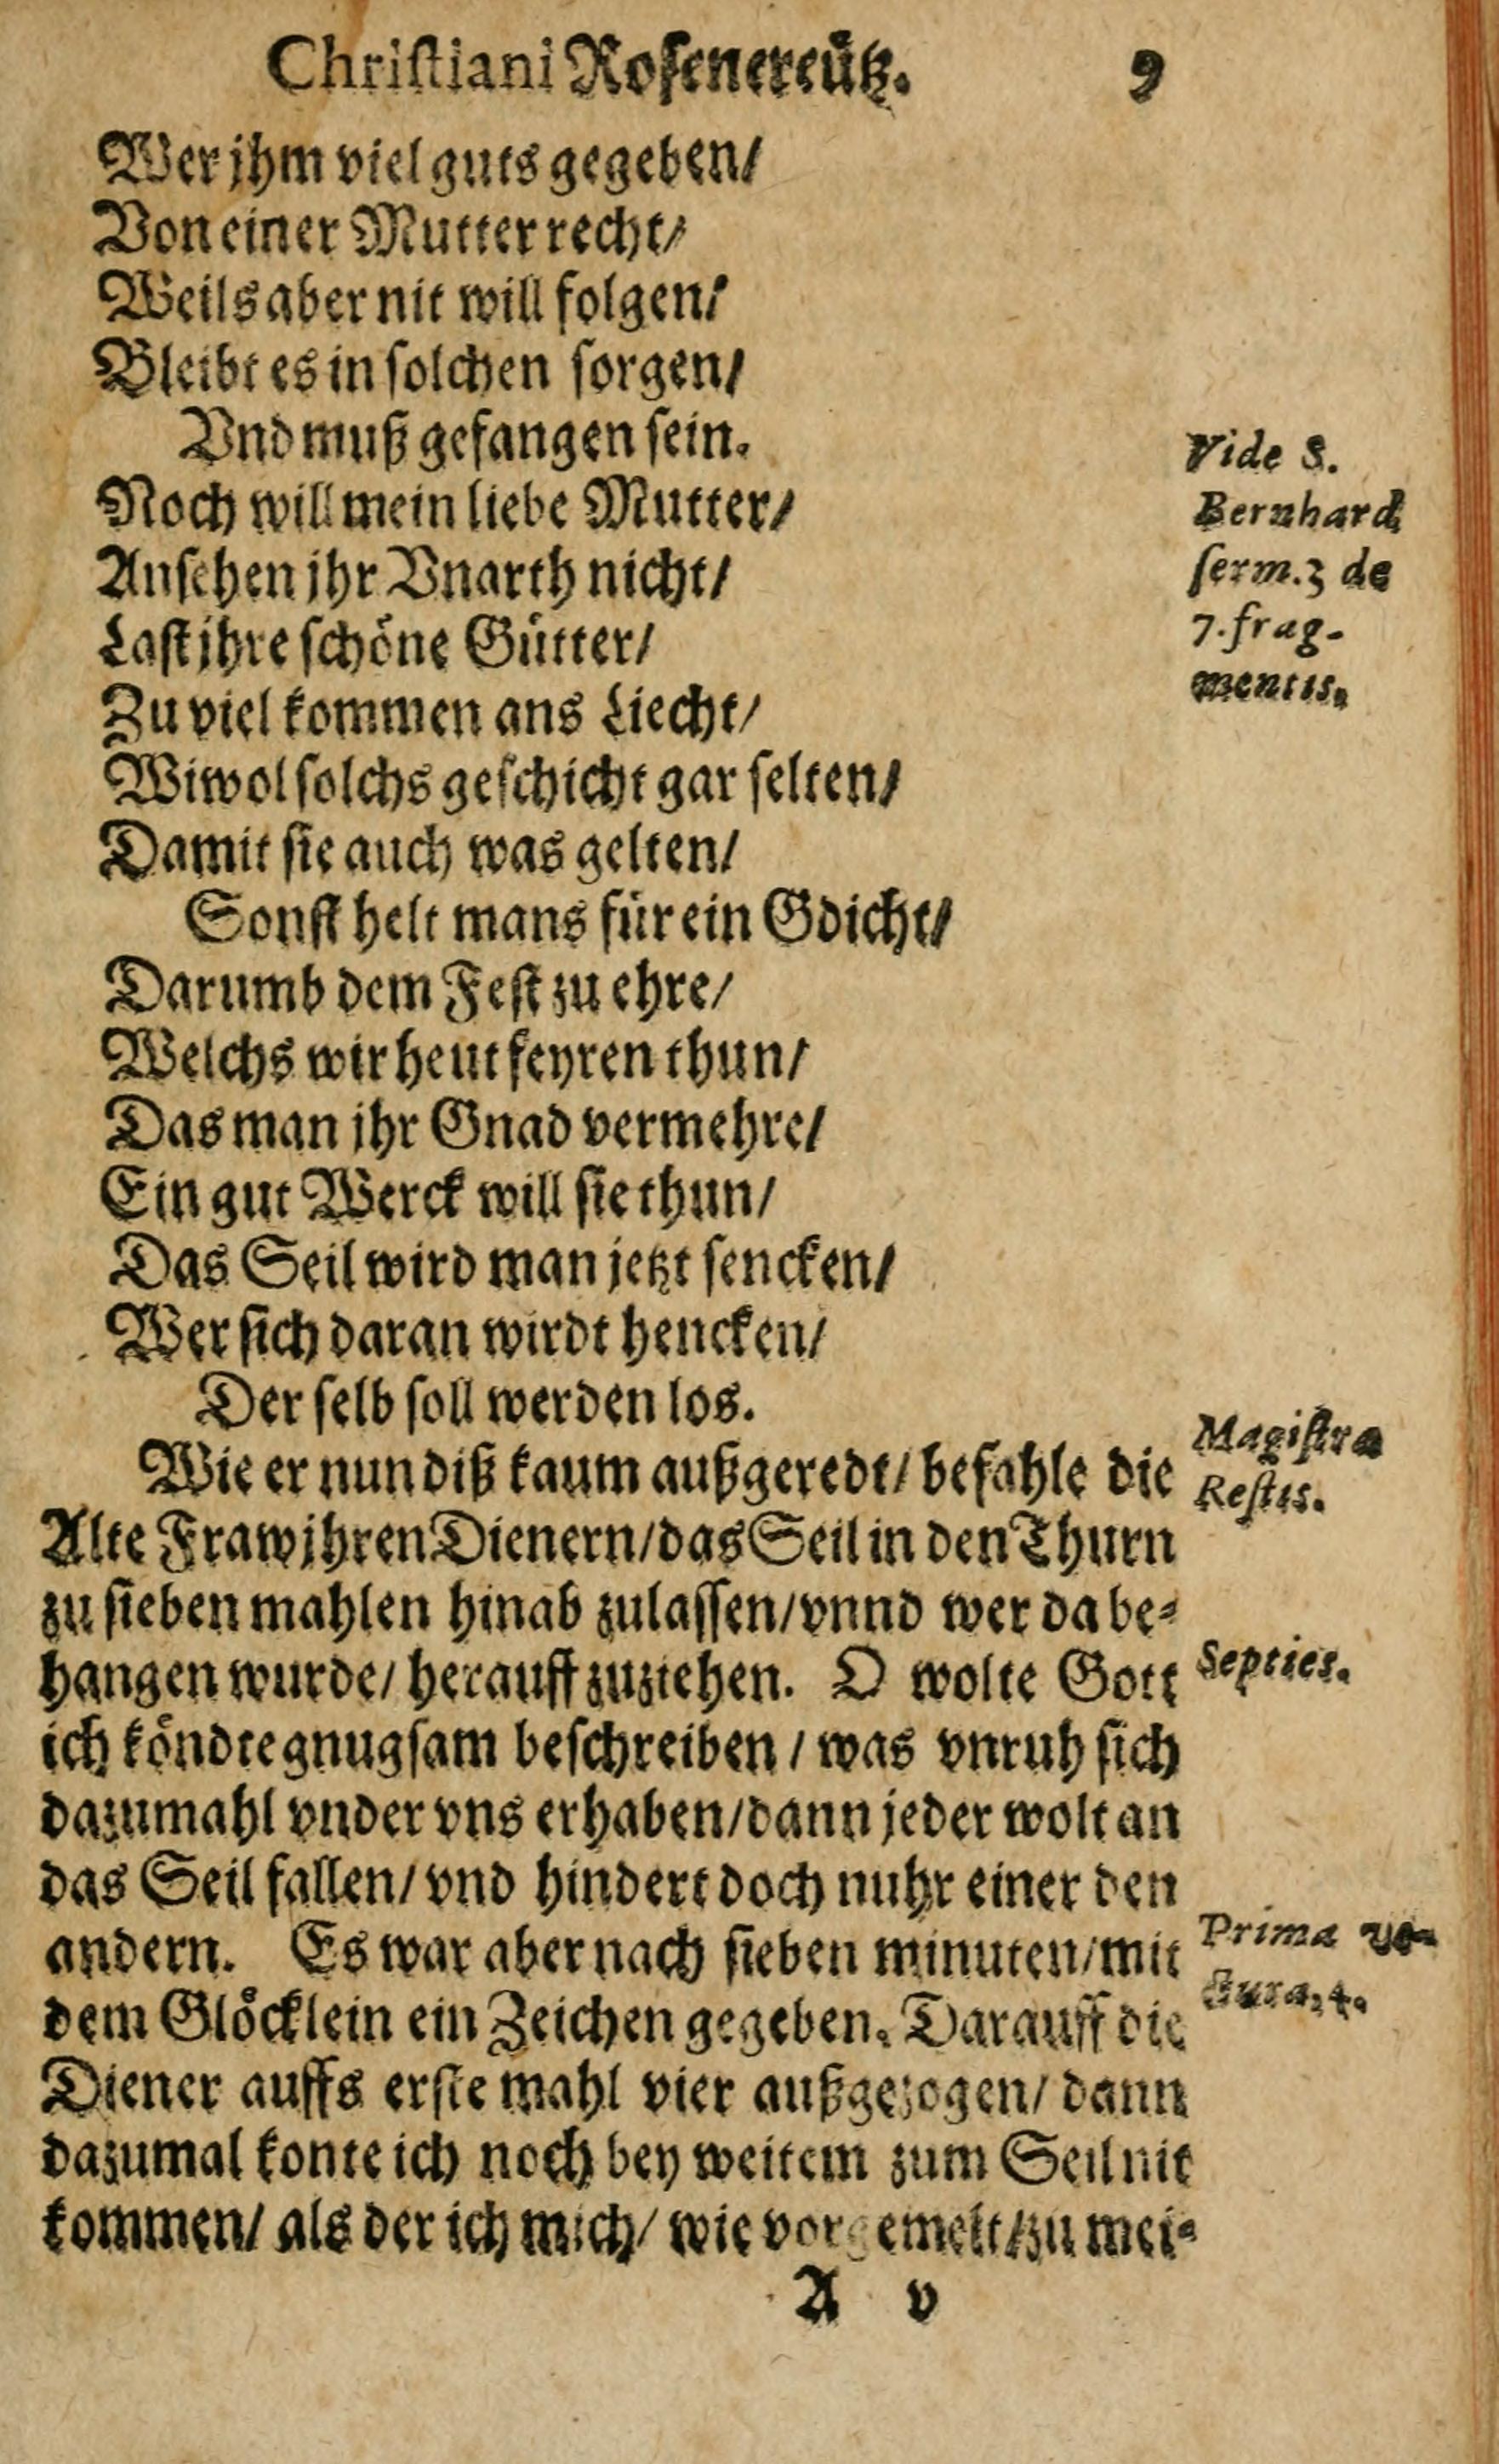 Christiani Rosencreütz. 9
Wer jhm viel guts gegeben/
Von einer Mutter recht/
Weils aber nit will folgen/
Bleibt es in solchen sorgen/
Vnd muß gefangen sein.
Noch will mein liebe Mutter/
Ansehen jhr Vnarth nicht/
Last jhre schöne Gütter/
Zu viel kommen ans Liecht/
Wiwol solchs geschicht gar selten/
Damit sie auch was gelten/
Sonst helt mans für ein Gdicht/
Darumb dem Fest zu ehre/
Welchs wir heut feyren thun/
Das man jhr Gnad vermehre/
Ein gut Werck will sie thun/
Das Seil wird man jetzt sencken/
Wer sich daran wirdt hencken/
Der selb soll werden los.
Wie er nun diß kaum außgeredt/ befahle die
Alte Fraw jhren Dienern/ das Seil in den Thurn
zu sieben mahlen hinab zulassen/ vnnd wer da be-
hangen wurde/ herauff zuziehen. O wolte Gott
ich köndte gnugsam beschreiben / was vnruh sich
dazumahl vnder vns erhaben/ dann jeder wolt an
das Seil fallen/ vnd hindert doch nuhr einer den
andern. Es war aber nach sieben minuten/ mit
dem Glöcklein ein Zeichen gegeben. Darauff die
Diener auffs erste mahl vier außgezogen/ dann
dazumal konte ich noch bey weitem zum Seil nit
kommen/ als der ich mich/ wie vorgemelt/ zu mei-
A v
Vide S.
Bernhard
serm. 3 de
7. frag-
mentis.
Magistra
Restis.
Septies.
Prima ve-
ctura, 4.